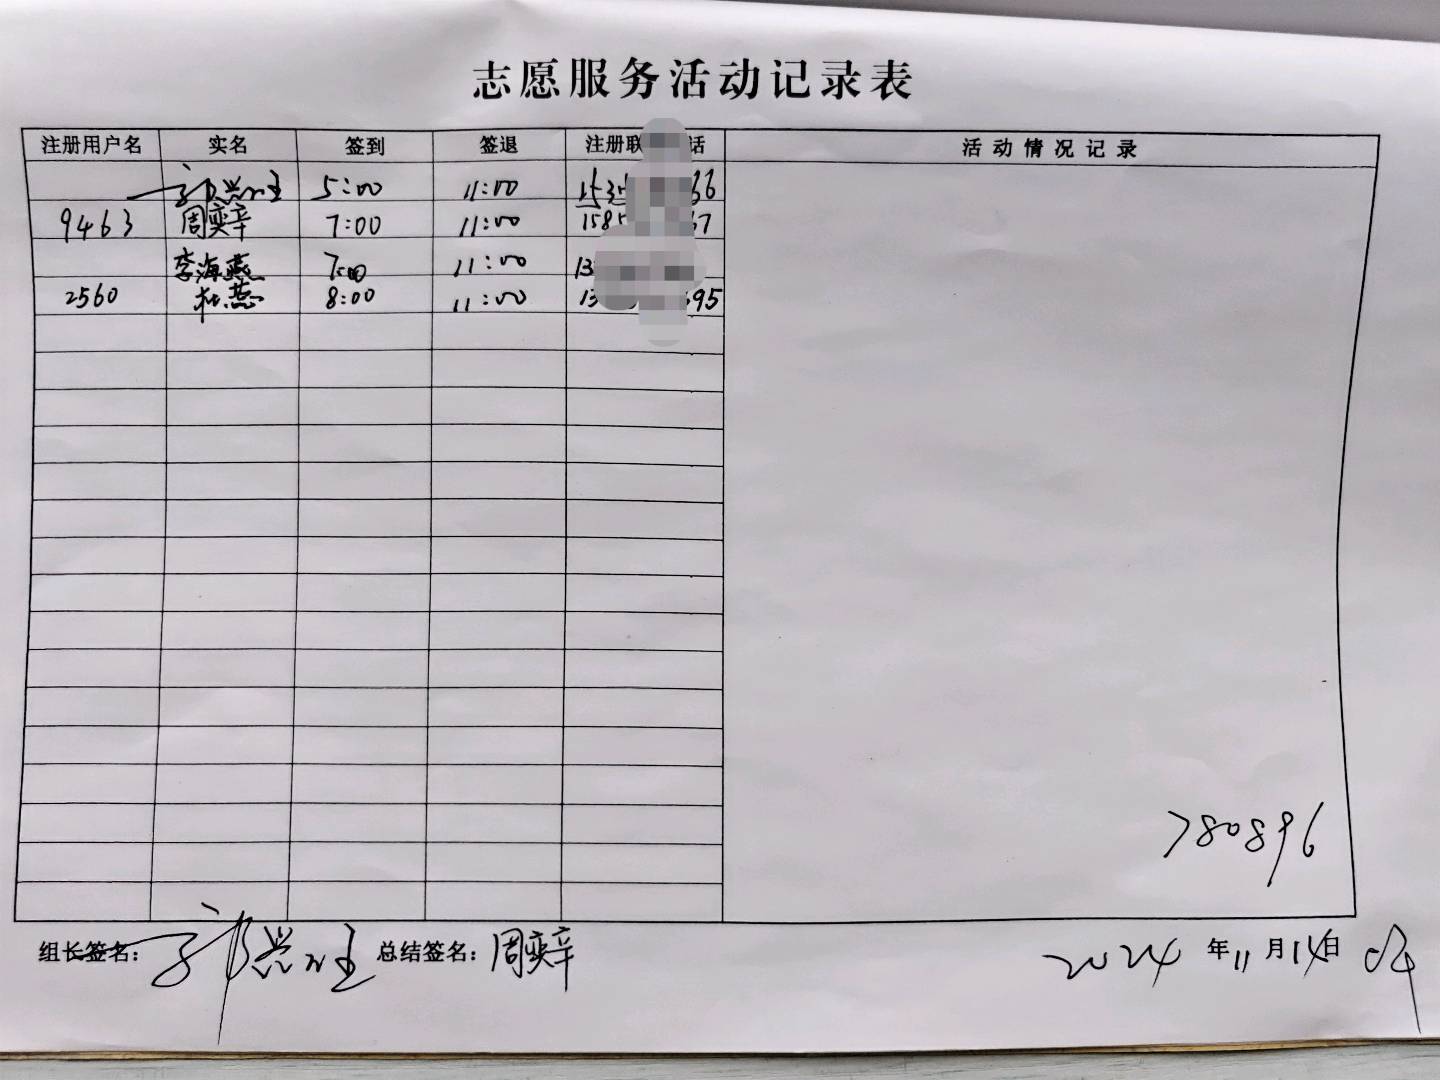 志愿服务活动记录表
注册用户名 实名 签到 签退 注册联 话 活动情况记录
5:00 11:00 153 66
9463 周奕辛 7:00 11:00 158 67
李海燕 7:00 11:00 13
2560 杜燕 8:00 11:00 13 95
780896
组长签名: 总结签名: 周奕辛 2024年11月14日